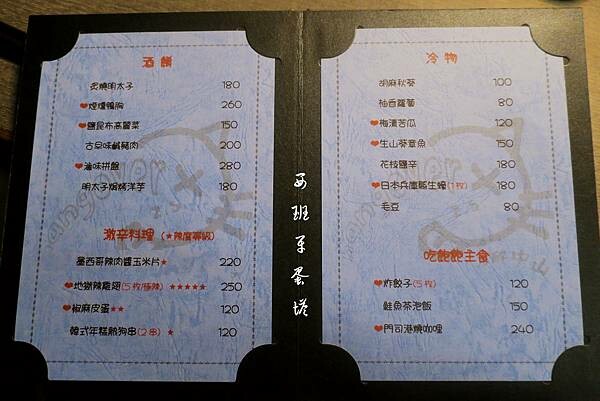 酒餚
炙燒明太子 180
❤煙燻鴨胸 260
❤鹽昆布高麗菜 150
古早味鹹豬肉 200
❤滷味拼盤 280
明太子焗烤洋芋 180
激辛料理 (★辣度等級)
墨西哥辣肉醬玉米片★ 220
❤地獄辣雞翅(5枚/極辣) ★★★★★ 250
❤椒麻皮蛋★★ 120
韓式年糕熱狗串(2串) ★ 120
冷物
胡麻秋葵 100
柚香蘿蔔 80
❤梅漬苦瓜 120
❤生山葵章魚 150
花枝鹽辛 180
❤日本兵庫縣生蠔(1枚) 180
毛豆 80
吃飽飽主食
❤炸餃子(5枚) 120
鮭魚茶泡飯 150
❤門司港燒咖哩 240